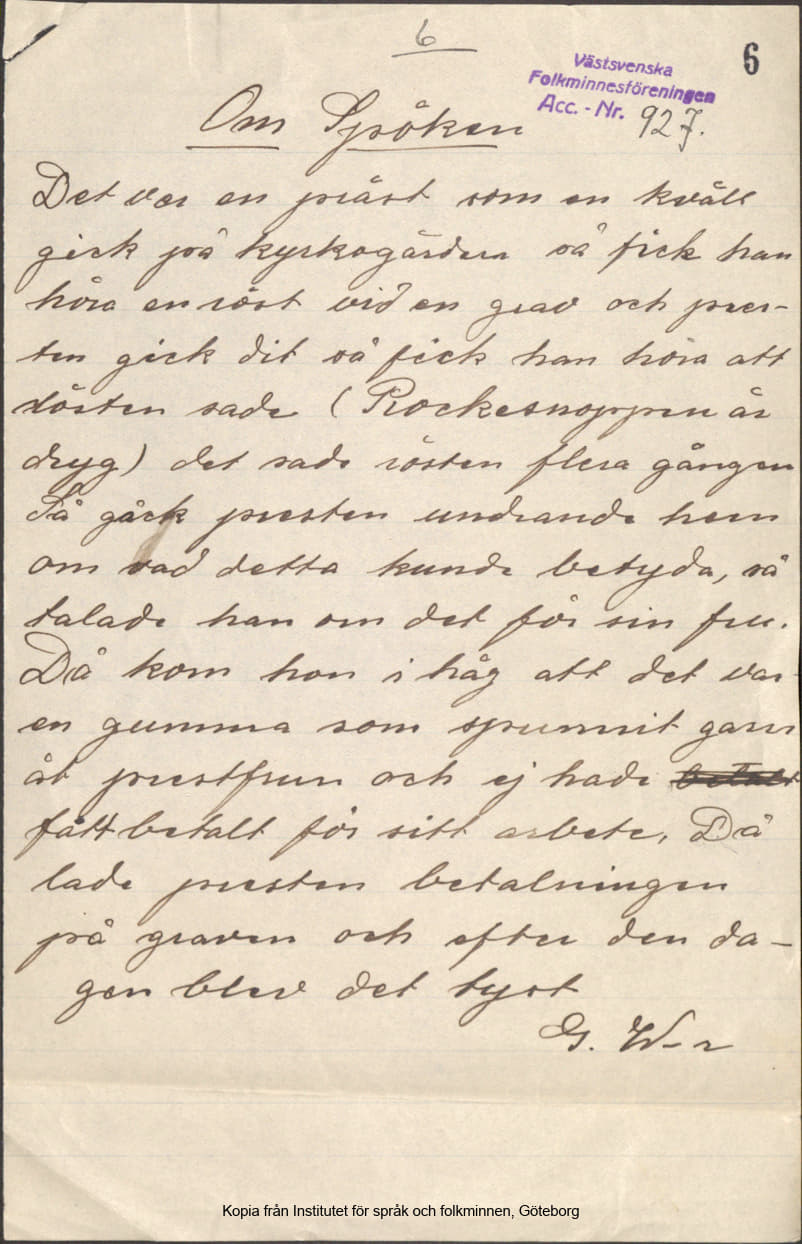 6
6
Västsvenska
Folkminnesföreningen
Acc. - Nr. 927.
Om Spöken
Det var en präst som en kväll
gick på kyrkogården så fick han
höra en röst vid en grav och pres-
ten gick dit så fick han höra att
rösten sade (Rockesnoppen är
dryg) det sade rösten flera gånger
Så gick presten undrande hem
om vad detta kunde betyda, så
talade han om det för sin fru.
Då kom hon i håg att det var
en gumma som spunnit garn
åt prestfrun och ej hade betalt
fått betalt för sitt arbete, Då
lade presten betalningen
på graven och efter den da-
gen blev det tyst
G. W-n
Kopia från Institutet för språk och folkminnen, Göteborg